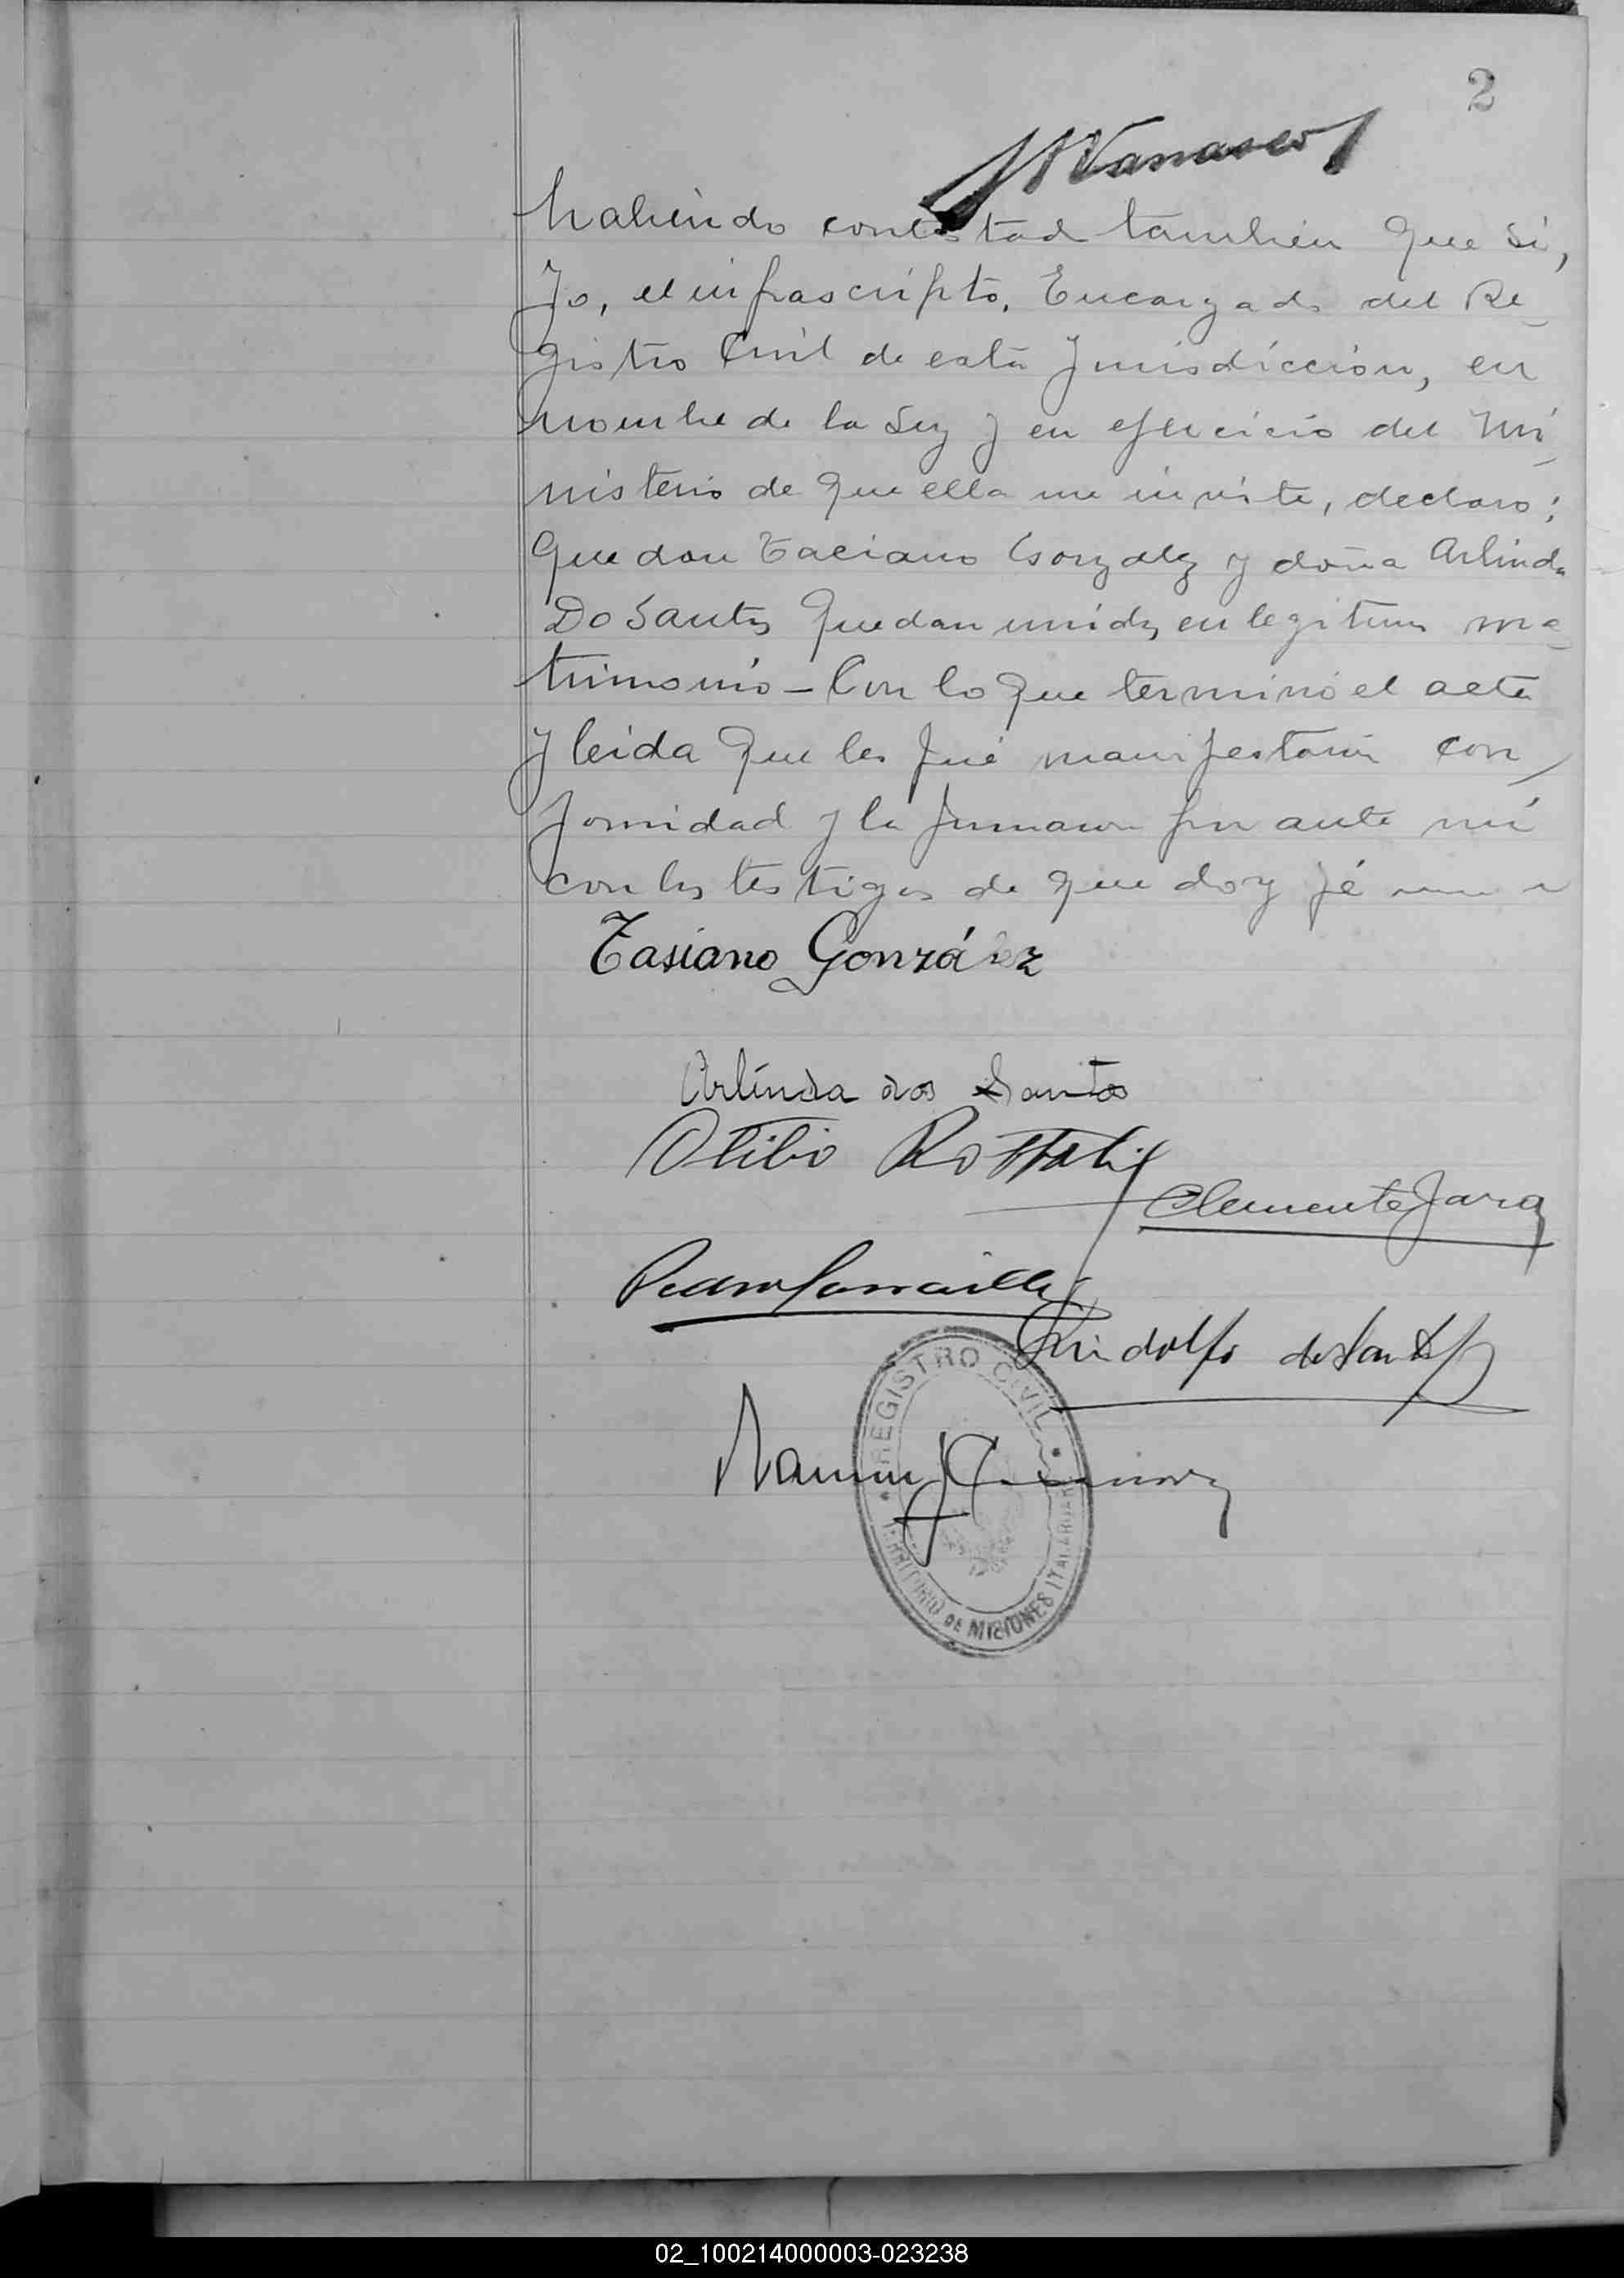 2
habiendo contestado tambien que si,
Yo, el infrascripto, Encargado del Re_
gistro Civil de esta Jurisdiccion, en
nombre de la Ley y en ejercicio del Mi_
nisterio de que ella me inviste, declaro:
Que don Taciano Gonzalez y doña Arlinda
Do Santos quedan unidos en legitimo ma_
trimonio - Con lo que terminó el acta
y leida que les fué manifestaron con_
formidad y la firmaron por ante mi
con los testigos de que doy fé
Tasiano González
Arlinda dos Santos
Otilio
Clemente Jara
Pedro
dos Santos
Ramon J
REGISTRO CIVIL
TERRITORIO DE MISIONES ITACARUARE
02_100214000003-023238